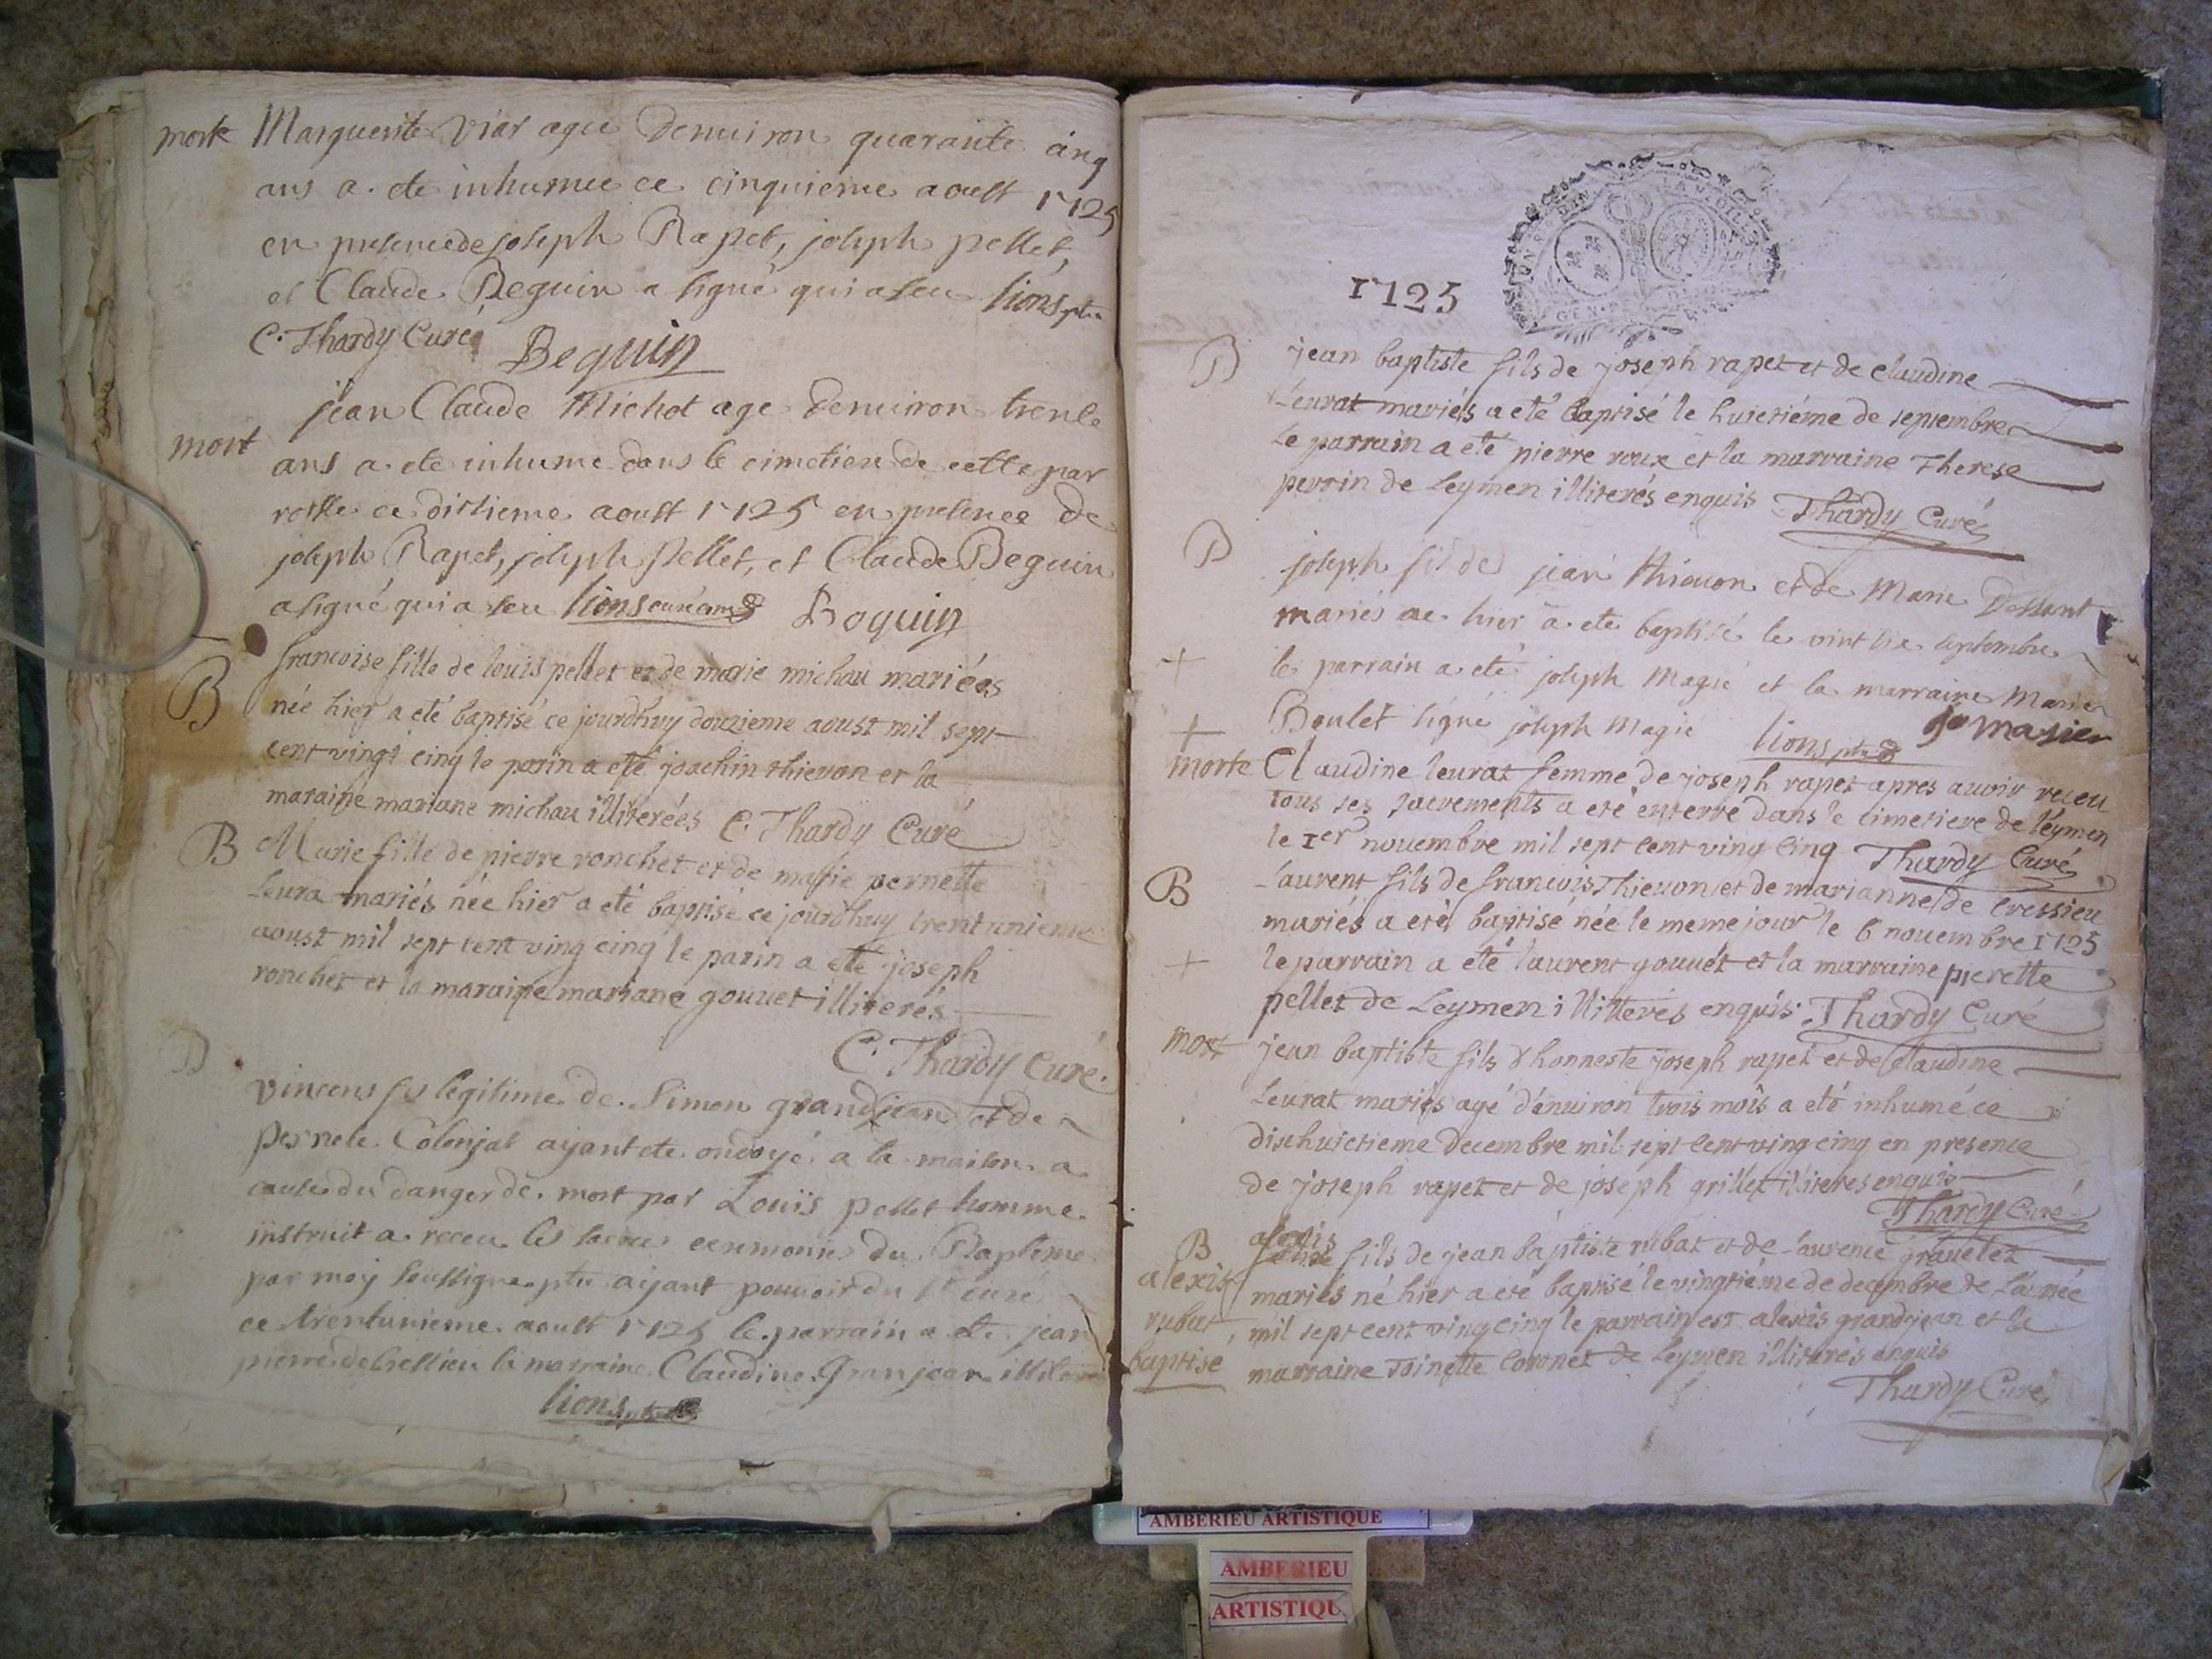 morte Marguerite Viar agee denuiron quarante cinq
ans a ete inhumee ce cinquieme aoust 1725
en presence de joseph Rapet, joseph pellet,
et Claude Beguin a signé qui a sceu lions ptre
C. Thardy Curé Beguin
jean Claude Michot age denuiron trente
mort
ans a ete inhume dans le cimetiere de cette par
roisse ce dixieme aoust 1725 en presence de
joseph Rapet, joseph pellet, et Claude Beguin
a signé qui a sceu lions Boguin
B francoise fille de louis pellet et de marie michau mariées
née hier a eté baptisé ce jourdhuy douzieme aoust mil sept
cent vingt cinq le parin a eté joachin thievon et la
maraine mariane michau illiterées C. Thardy Curé
B Marie fille de pierre ronchet et de marie pernette
Leura mariés née hier a eté baptisé ce jourdhuy trent unieme
aoust mil sept cent ving cinq le parin a eté joseph
ronchet et la maraine mariane gouuet illiterés
C. Thardy Curé.
B
vincens fils legitime de Simon grandjean et de
pernete Colonjat ayant ete ondoyé a la maison a
cause du danger de mort par Louïs pellet homme
instruit a receu les ceremonies du Baptême
par moy soussigne ptre ayant pouuoir du sr curé
ce trentunieme aoust 1725 le parrain a ete jean
pierre la marraine Claudine Granjean
lions ptre
1725
GEN
B jean baptiste fils de joseph rapet et de claudine
Leurat mariés a eté baptisé le huictiéme de septembre
Le parrain a eté pierre roux et la marraine Therese
perrin de Leymen illiterés enquis Thardy Curé
B
joseph fil de jean thieuon et de Marie Dessant
mariés ne hier a ete baptisé le vint six septembre
+ le parrain a eté joseph Magié et la marraine Marie
+ Boulet signé joseph Magié lions ptre jo masier
morte Claudine leurat femme de joseph rapet apres auoir receu
tous ses sacrements a eté enterré dans le cimetiere de leymen
le 1er nouembre mil sept cent ving cinq Thardy Curé
B Laurent fils de francois Thieuon et de marianne de cressieu
mariés a eté baptisé née le meme jour le 6 nouembre 1725
+ le parrain a été laurent gouuét et la marraine pierette
pellet de Leymen illitterés enquis. Thardy Curé
mort jean baptiste fils d'honneste joseph rapet et de Claudine
Leurat mariés agé d'énuiron trois mois a eté inhumé ce
dixhuictieme decembre mil sept cent ving cinq en presence
de joseph rapet et de joseph grillet illiteres enquis
Thardy Curé
alexis
B fils de jean baptiste rubat et de Laurence grauelet
alexis mariés né hier a eté baptisé le vingtiéme de decembre de L'année
rubat mil sept cent ving cinq le parrain est alexis grandjean et la
baptisé marraine Toinette Coronet de Leymen illiterés enquis
Thardy Curé
AMBERIEU ARTISTIQUE
AMBERIEU
ARTISTIQU